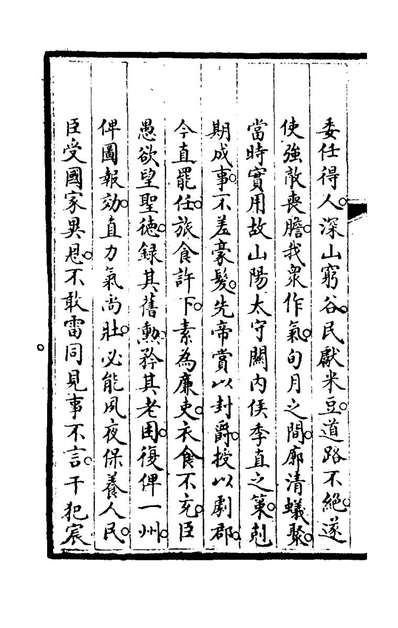 委任得人。深山窮谷。民獻米豆。道路不絶。遂
使強敵喪膽。我衆作氣。旬月之間。廓清蟻聚。
當時實用故山陽太守關内侯李直之策。剋
期成事。不差豪髮。先帝賞以封爵。授以劇郡。
今直罷任。旅食許下。素為廉吏。衣食不充。臣
愚欲望聖德。録其舊勲。矜其老困。復俾一州。
俾圖報効。直力氣尚壯。必能夙夜保養人民。
臣受國家異恩。不敢雷同見事不言。干犯宸